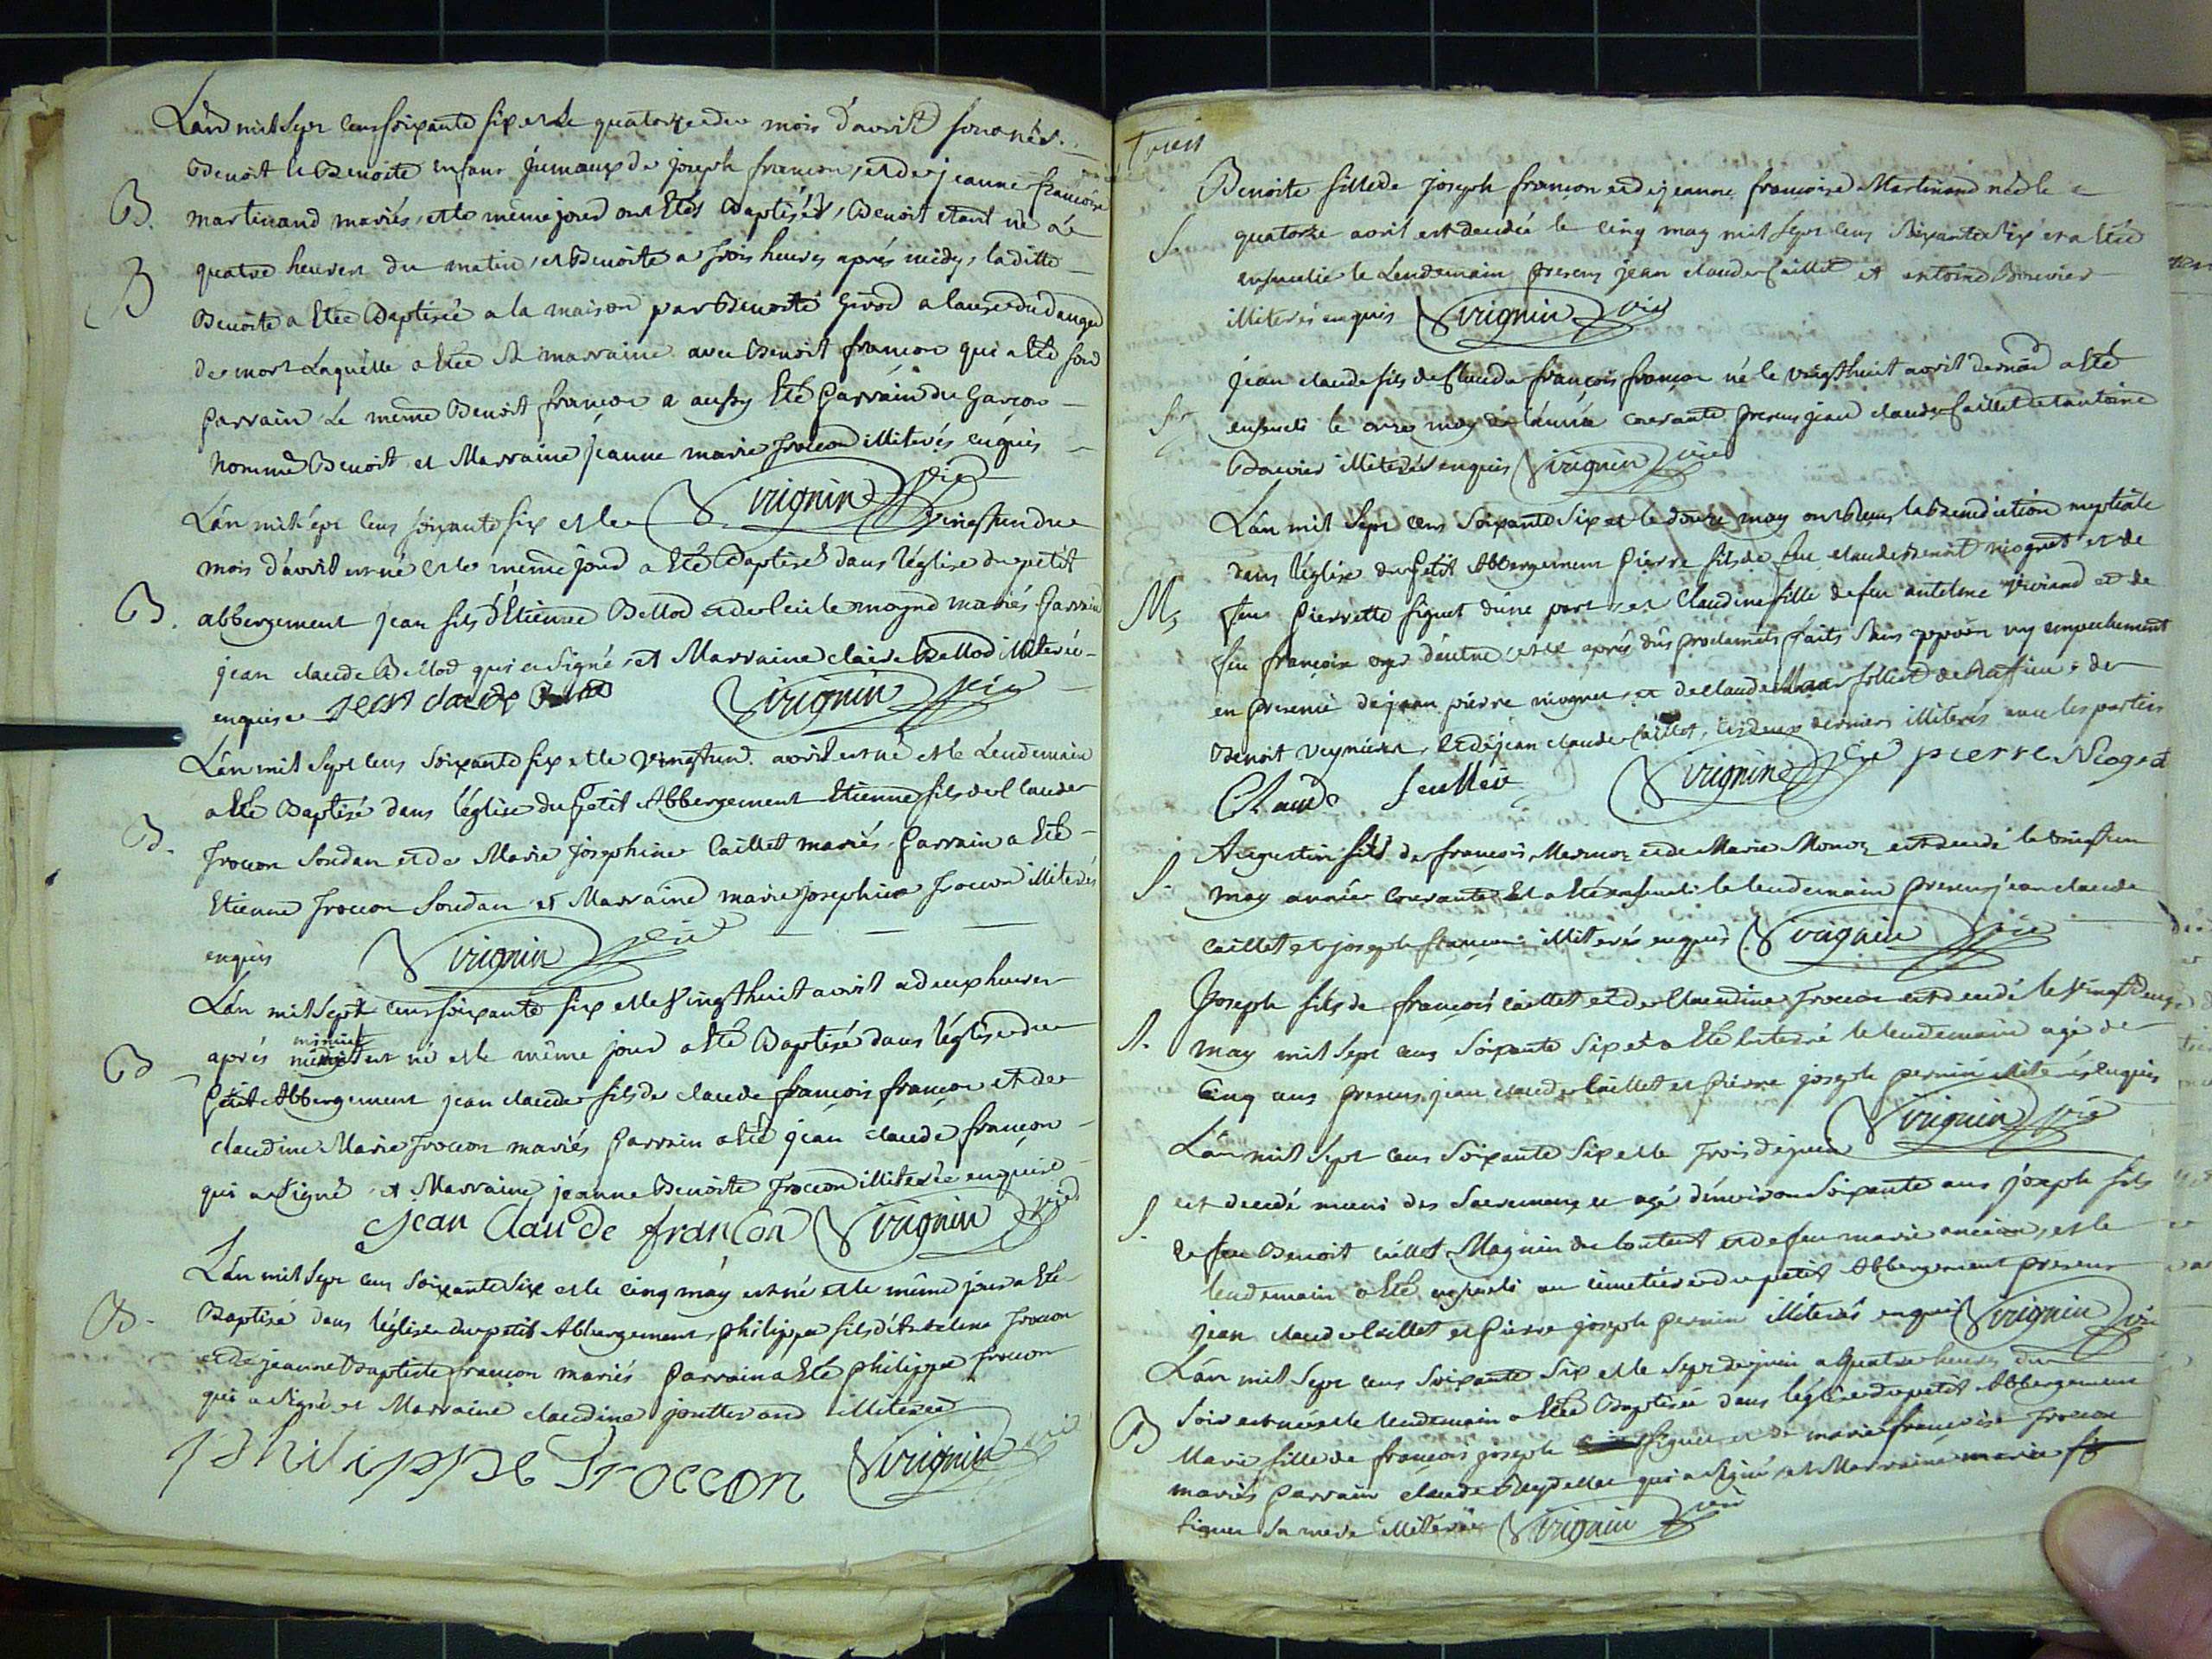 L'an mil sept cens soixante six et le quatorze du mois d'avril sont nés
Benoit et Benoite enfans jumaux de joseph françon, et de jeanne françoise
B. martinand mariés, et le même jour ont étés Baptisés, Benoit etant né à
B quatre heures du matin, et Benoite a trois heures après midy, laditte
Benoite a été Baptisée a la maison par Benoite Girod a cause du danger
de mort Laquelle a été sa marraine avec Benoit françon qui a été son
parrain Le même Benoit françon a aussy été parrain du Garçon
nommé Benoit et Marraine jeanne marie froccon illiterés enquis
Virignin vic
L'an mil sept cens soixante six et le vingt un du
mois d'avril est né et le même jour a été Baptisé dans l'église du petit
B. abbergement jean fils d'Etienne Bellod et de Cecile moyne mariés parrain
jean claude Bellod qui a signé, et Marraine claire Bellod illiterée
enquise jean claude Virignin vic
L'an mil sept cens soixante six et le vingt un avril est né et le Lendemain
B. a été Baptisé dans l'église du petit Abbergement Etienne fils de Claude
froccon Soudan et de Marie josephine Caillet mariés parrain a été
Etienne froccon Soudan et Marraine marie josephine froccon illiterés
enquis Virignin vic
L'an mil sept cens soixante six et le vingt huit avril a deux heures
minuit
B après est né et le même jour a été Baptisé dans l'église du
petit Abbergement jean claude fils de claude françois françon et de
claudine Marie froccon mariés parrain a été jean claude françon
qui a signé et Marraine jeanne Benoite froccon illiterée enquise
Jean Claude françon Virignin vic
L'an mil sept cens soixante six et le cinq may est né et le même jour a été
B. Baptisé dans l'église du petit Abbergement, philippe fils d'Antelme froccon
et de jeanne Baptiste françon mariés parrain a été philippe froccon
qui a signé et Marraine claudine jeutterand illiterée
philippe Froccon Virignin vic
Benoite fille de joseph françon et de jeanne françoise Martinand née le
S. quatorze avril est decedée le cinq may mil sept cens soixante six et a été
ensevelie le Lendemain presens jean claude Caillet et antoine Bouvier
illiterés enquis Virignin vic
jean claude fils de Claude françois françon né le vingt huit avril dernier a été
enseveli le onze may de l'année courante presens jean claude Caillet et antoine
Bouvier illiterés enquis Virignin vic
L'an mil sept cens soixante six et le douze may ont reçu la Benediction nuptiale
dans l'église du petit Abbergement Pierre fils de feu claude Benoit niogret et de
M. feue Pierrette figuet d'une part et Claudine fille de feu antelme viviand et de
feue françoise d'autre, et ce après dûs proclamats faits sans y avoir vu empechement
en presence de jean pierre niogret, et de claude de Ruffieu, de
Benoit Veyniere, et de jean claude Caillet, les deux derniers illiterés avec les parties
Claude Virignin vic pierre Niogret
Augustin fils de françois et de Marie Monoz est decedé le vingt un
S. may année courante et a été enseveli le lendemain presens jean claude
caillet et joseph françon illiterés enquis Virignin vic
Joseph fils de françois caillet et de Claudine froccon est decedé le vingt deux
S. may mil sept cens soixante six et a été enterré le lendemain agé de
cinq ans presens jean claude Caillet et pierre joseph pernin illiterés enquis
Virignin vic
L'an mil sept cens soixante six et le trois de juin
est decedé muni des sacremens et agé d'environ soixante ans joseph fils
S. de feu Benoit caillet Magnin de et de feu marie, et le
lendemain a été enseveli au cimetiere du petit Abbergement presens
jean claude Caillet et pierre joseph pernin illiterés enquis Virignin vic
L'an mil sept cens soixante six et le sept de juin a quatre heures du
soir est née et le lendemain a été Baptisée dans l'église du petit Abbergement
B Marie fille de françois joseph figuet et de marie françoise froccon
mariés parrain claude Reydellet qui a signé, et Marraine marie
figuet sa mere illiterée Virignin vic